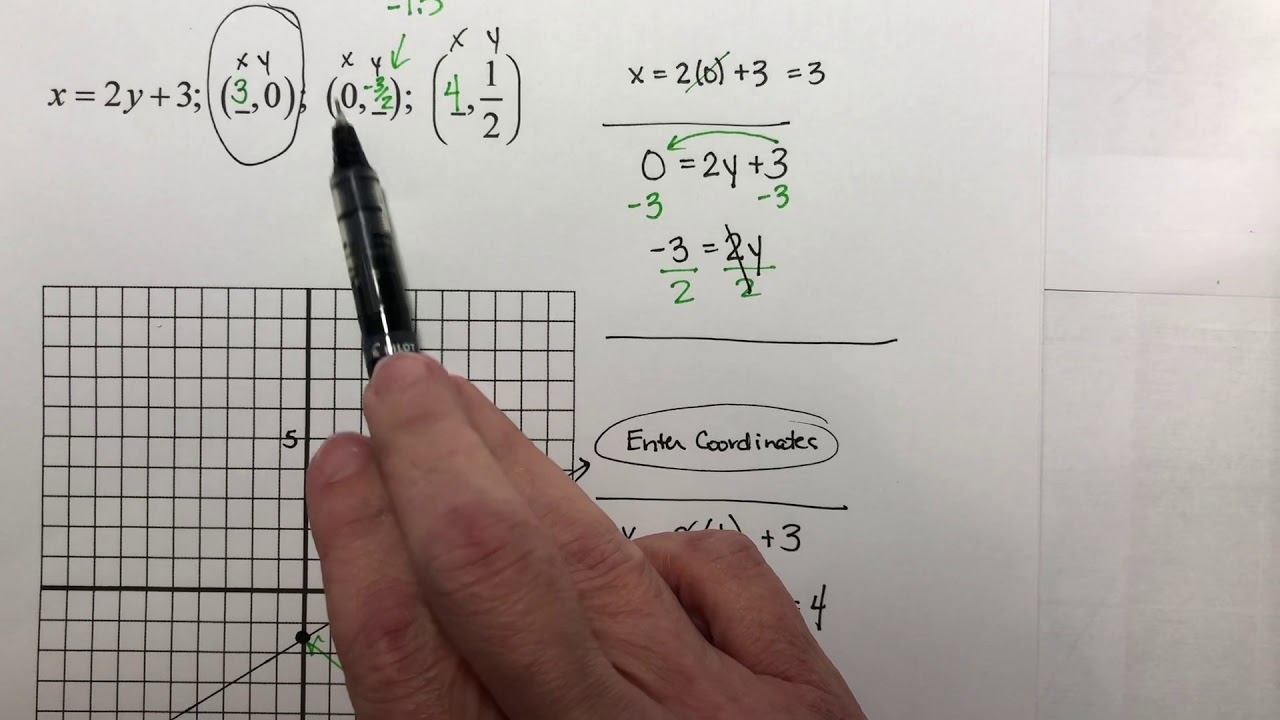 -1.5
x y x y x y
x = 2y + 3; (3, 0); (0, -3/2); (4, 1/2)
x = 2(0) + 3 = 3
0 = 2y + 3
-3 -3
-3 = 2y
2 2
PILOT
5
Enter Coordinates
+ 3
= 4